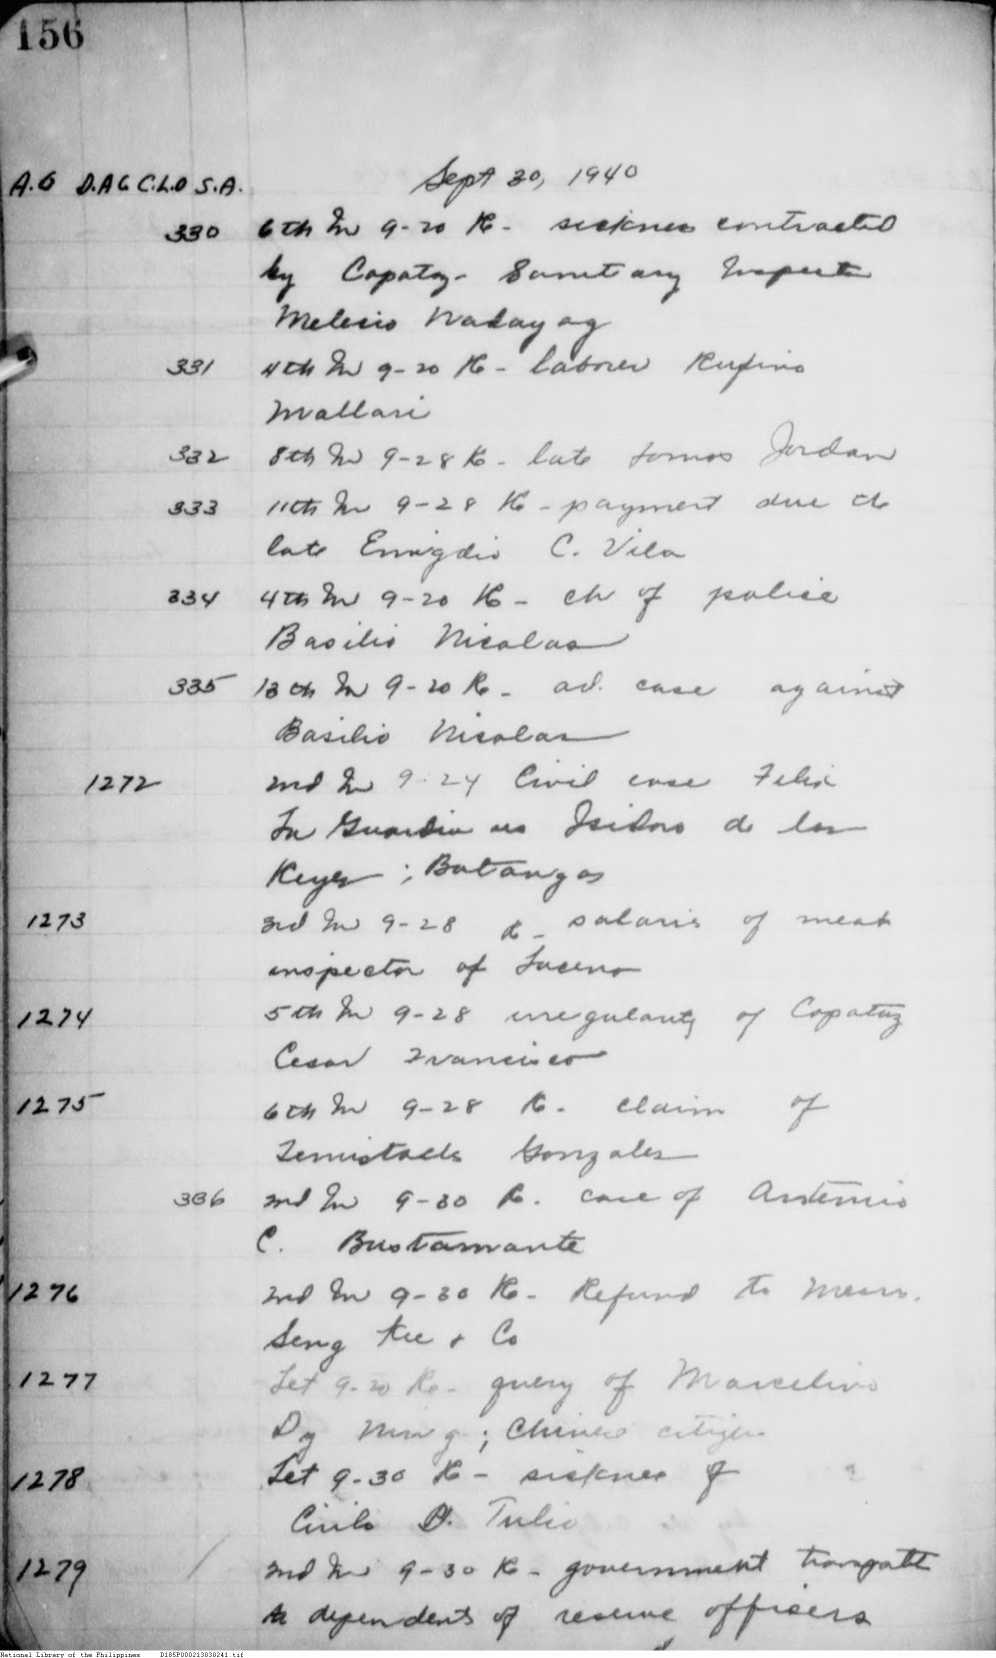 156
A.G D.A G C.L.O S.A. Sept 30, 1940
330 6th In 9-20 Re- sickness contracted
by Capataz - Sanitary Inspector
Melecio
331 4th In 9-20 Re - laborer Rufino
Mallari
332 8th In 9-28 Re - late Tomas Jordan
333 11th In 9-28 Re - payment due the
late Emigdio C. Vila
334 4th In 9-20 Re - ch of police
Basilio Nicolas
335 13th In 9-20 Re - ad. case against
Basilio Nicolas
1272 2nd In 9-24 Civil case Felix
La Guardia vs Isidoro de los
Reyes ; Batangas
1273 3rd In 9-28 Re - salaries of meat
inspector of Lucena
1274 5th In 9-28 irregularity of Capataz
Cesar Francisco
1275 6th In 9-28 Re. claim of
Temistocles Gonzales
336 2nd In 9-30 Re. case of Artemio
C. Bustamante
1276 2nd In 9-30 Re - Refund to Messrs.
Seng Kee & Co
1277 Let 9-20 Re - query of Marcelino
Dy ; Chinese citizen
1278 Let 9-30 Re - sickness of
Cirilo D. Tulio
1279 2nd In 9-30 Re - government
to dependents of reserve officers
National Library of the Philippines D185P000213830241.tif